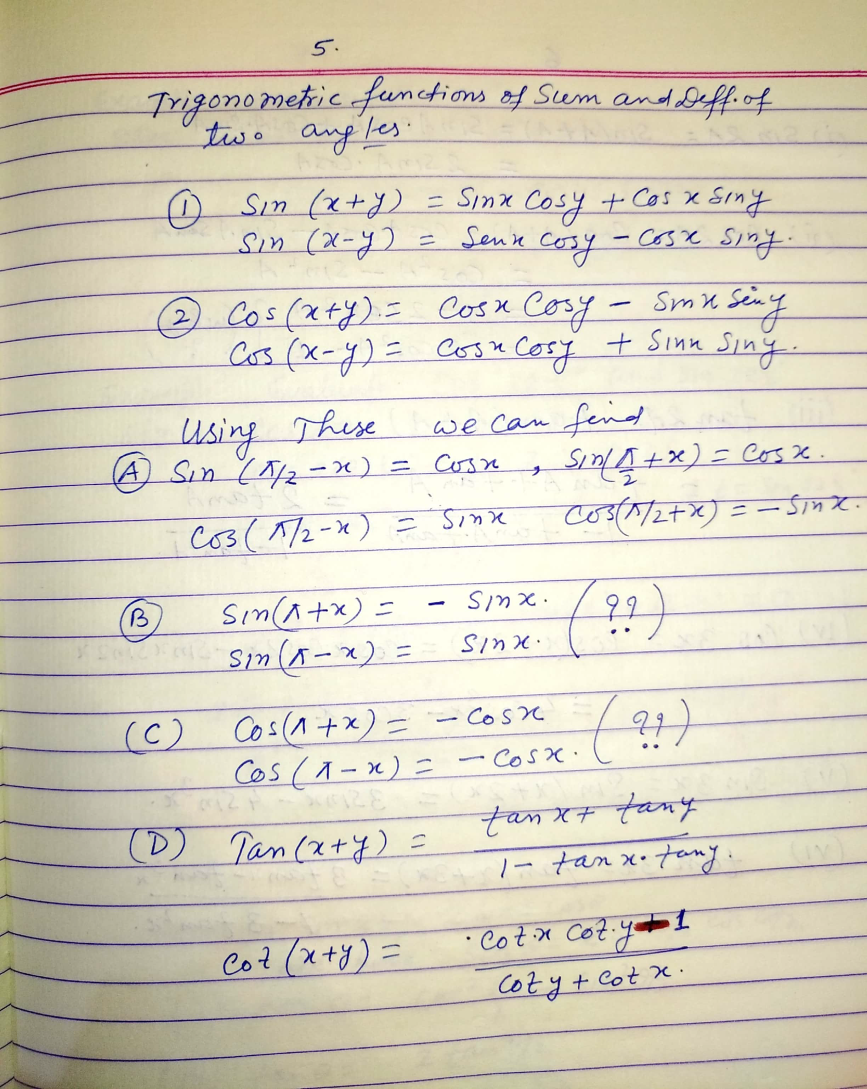 5.
Trigonometric functions of Sum and Deff. of
two angles.
① Sin (x+y) = Sinx Cosy + Cos x Siny
Sin (x-y) = Senx Cosy - Cosx Siny.
② Cos (x+y) = Cosx Cosy - Sinx Siny
Cos (x-y) = Cosx Cosy + Sinx Siny.
Using These we can find
Ⓐ Sin (π/2 - x) = Cosx , Sin(π/2 + x) = Cosx.
Cos(π/2 - x) = Sinx Cos(π/2 + x) = - Sinx.
Ⓑ Sin(π+x) = - Sinx. (??)
Sin(π-x) = Sinx.
(C) Cos(π+x) = - Cosx (??)
Cos (π-x) = - Cosx.
(D) Tan(x+y) = tan x + tan y
1 - tan x. tan y.
Cot (x+y) = Cot.x Cot.y + 1
Cot y + Cot x.